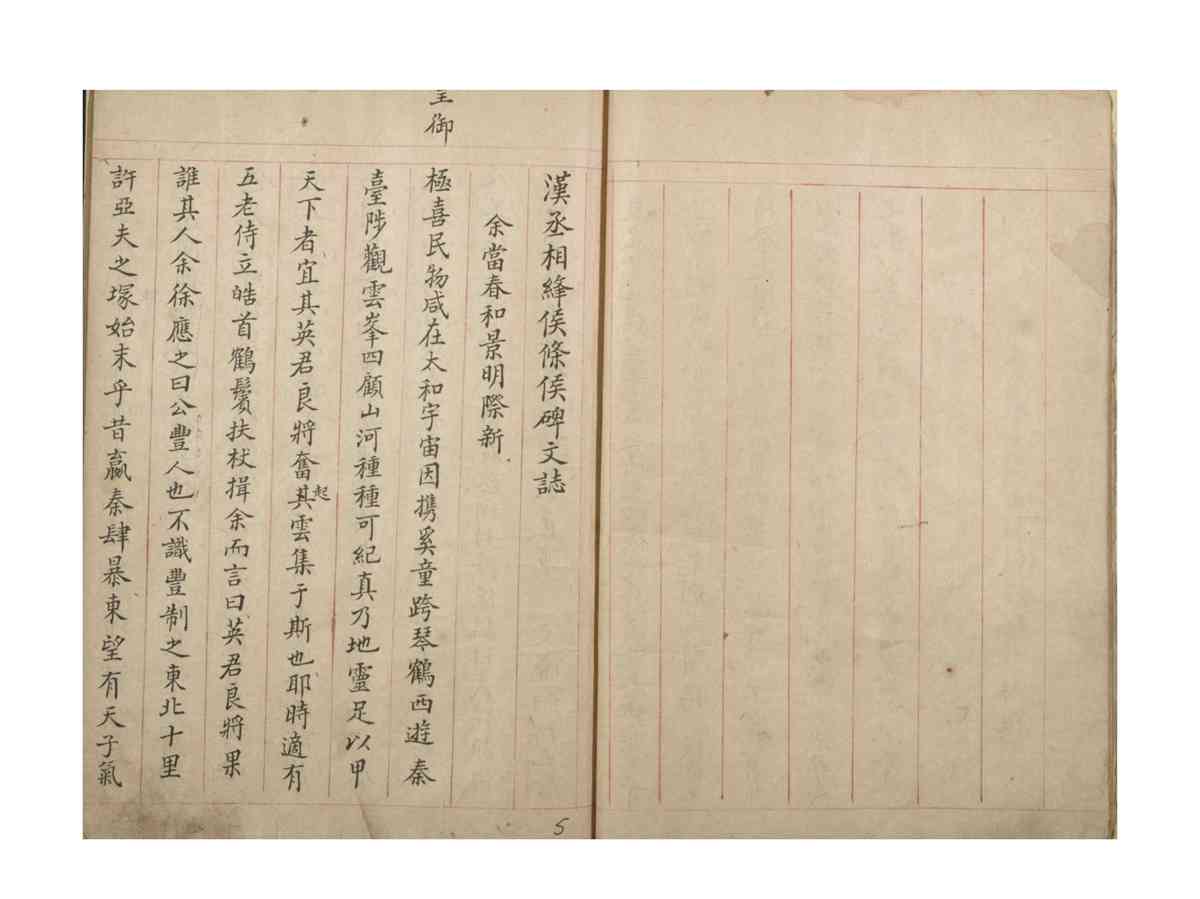 漢丞相絳侯條侯碑文誌
余當春和景明際新
皇御
極喜民物咸在太和宇宙因携奚童跨琴鶴西遊秦
臺陟觀雲峯四顧山河種種可紀真乃地靈足以甲
天下者宜其英君良將奮起其雲集于斯也耶時適有
五老侍立皓首鶴鬢扶杖揖余而言曰英君良將果
誰其人余徐應之曰公豐人也不識豐制之東北十里
許亞夫之塚始末乎昔嬴秦肆暴東望有天子氣
5